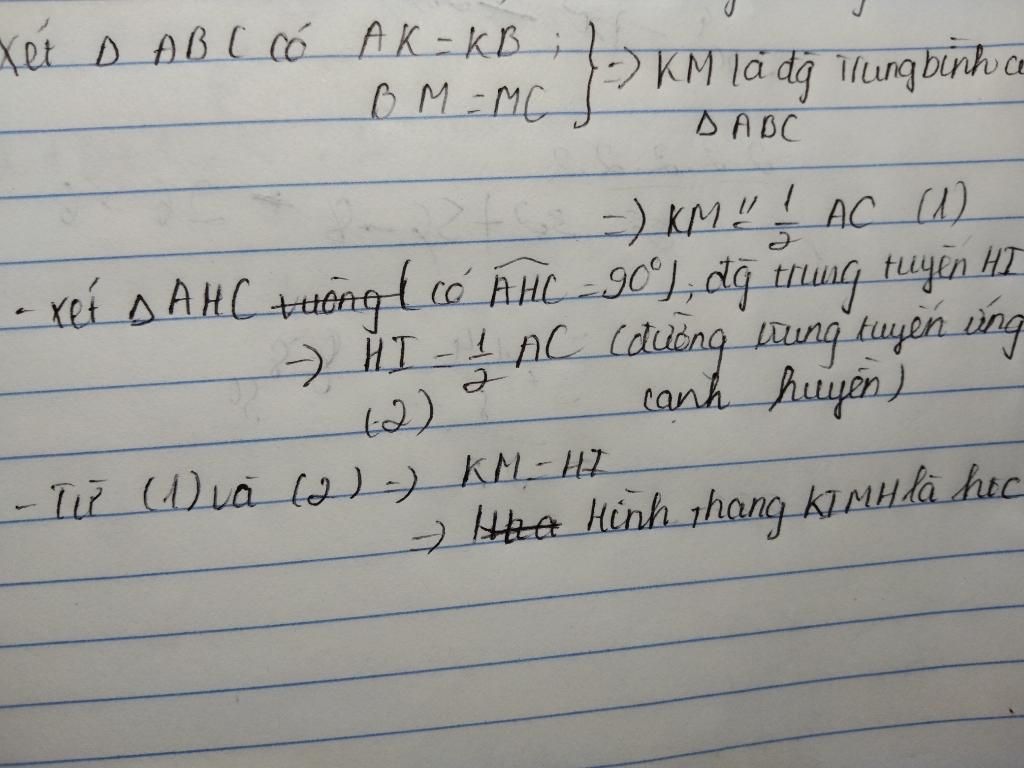 Xét Δ ABC có AK = KB ;
BM = MC } => KM là đg trung bình c
Δ ABC
=> KM // = 1/2 AC (1)
- Xét Δ AHC vuông ( có AHC = 90°), đg trung tuyến HI
=> HI = 1/2 AC (đường trung tuyến ứng
(2) cạnh huyền)
- Từ (1) và (2) => KM = HI
=> Hình thang KIMH là htc